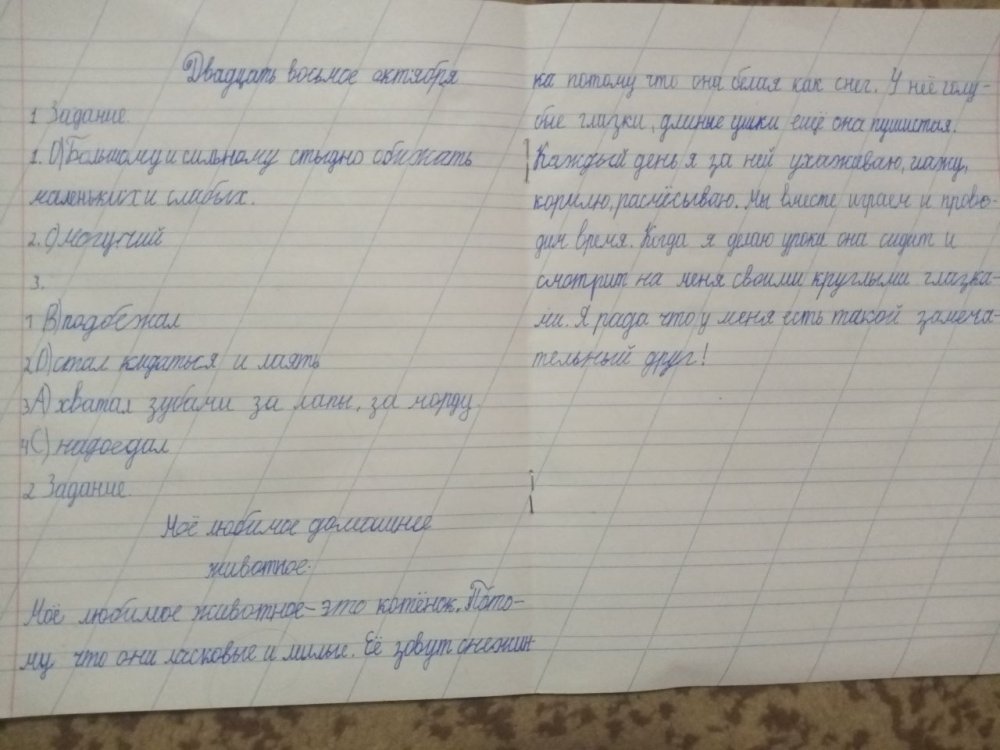 Двадцать восьмое октября
1 Задание.
1. D) Большому и сильному стыдно обижать
маленьких и слабых.
2. C) могучий
3.
1 B) подбежал
2 D) стал кидаться и лаять
3 A) хватал зубами за лапы, за морду
4 C) надоедал
2 Задание.
Моё любимое домашнее
животное.
Моё любимое животное – это котёнок. Пото-
му что они ласковые и милые. Её зовут снежин
ка потому что она белая как снег. У неё голу-
бые глазки, длиные ушки ещё она пушистая.
Каждый день я за ней ухаживаю, глажу,
кормлю, расчёсываю. Мы вместе играем и прово-
дим время. Когда я делаю уроки она сидит и
смотрит на меня своими круглыми глазка-
ми. Я рада что у меня есть такой замеча-
тельный друг!